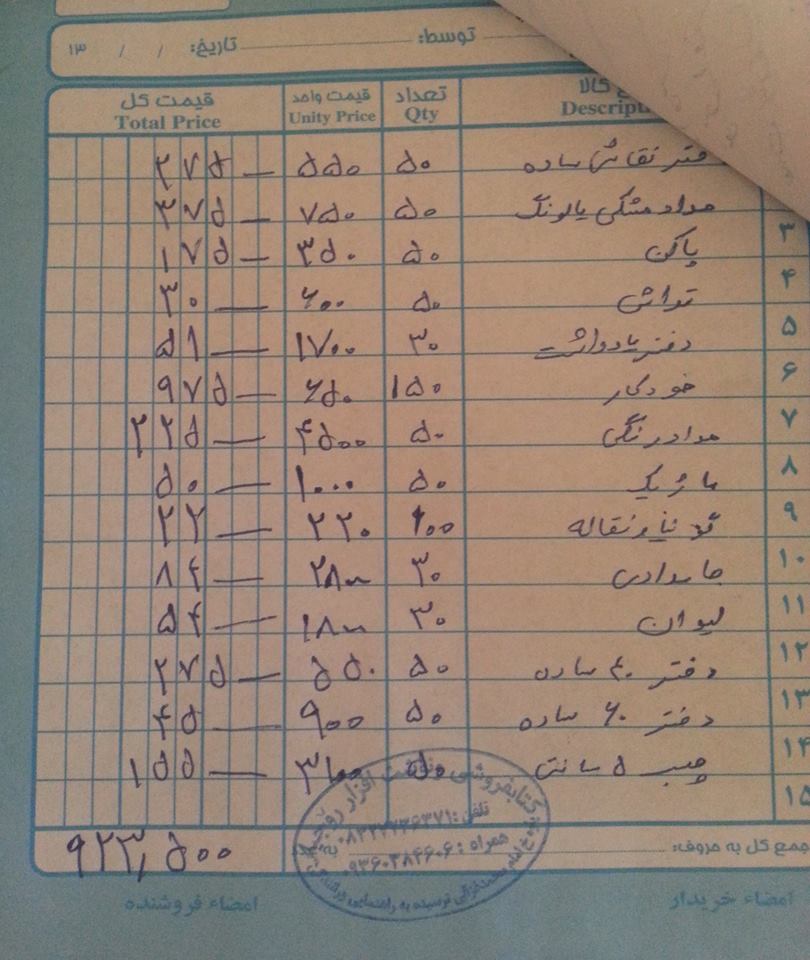 توسط: تاریخ: / / ۱۳
کالا تعداد قیمت واحد قیمت کل
Descript Qty Unity Price Total Price
دفتر نقاشی ساده ۵۰ ۵۵۰ ۲۷۵ —
مداد مشکی پالونگ ۵۰ ۷۵۰ ۳۷۵ —
۳ پاکن ۵۰ ۳۵۰ ۱۷۵ —
۴ تراش ۵۰ ۶۰۰ ۳۰ —
۵ دفتر یادداشت ۳۰ ۱۷۰۰ ۵۱ —
۶ خودکار ۱۵۰ ۶۵۰ ۹۷۵ —
۷ مداد رنگی ۵۰ ۴۵۰۰ ۲۲۵ —
۸ ماژیک ۵۰ ۱۰۰۰ ۵۰ —
۹ گونیا و نقاله ۱۰۰ ۲۲۰ ۲۲ —
۱۰ جامدادی ۳۰ ۲۸۰۰ ۸۴ —
۱۱ لیوان ۳۰ ۱۸۰۰ ۵۴ —
۱۲ دفتر ۴۰ ساده ۵۰ ۵۵۰ ۲۷۵ —
۱۳ دفتر ۶۰ ساده ۵۰ ۹۰۰ ۴۵ —
۱۴ چسب ۵ سانتی ۵۰ ۳۱۰۰ ۱۵۵ —
۱۵
کتابفروشی و نوشت افزار
تلفن: ۰۸۳۲۷۲۳۶۳۷۱
همراه: ۰۹۳۶۰۳۸۴۶۰۶
جمع کل به حروف: ۹۲۳,۵۰۰
امضاء خریدار امضاء فروشنده